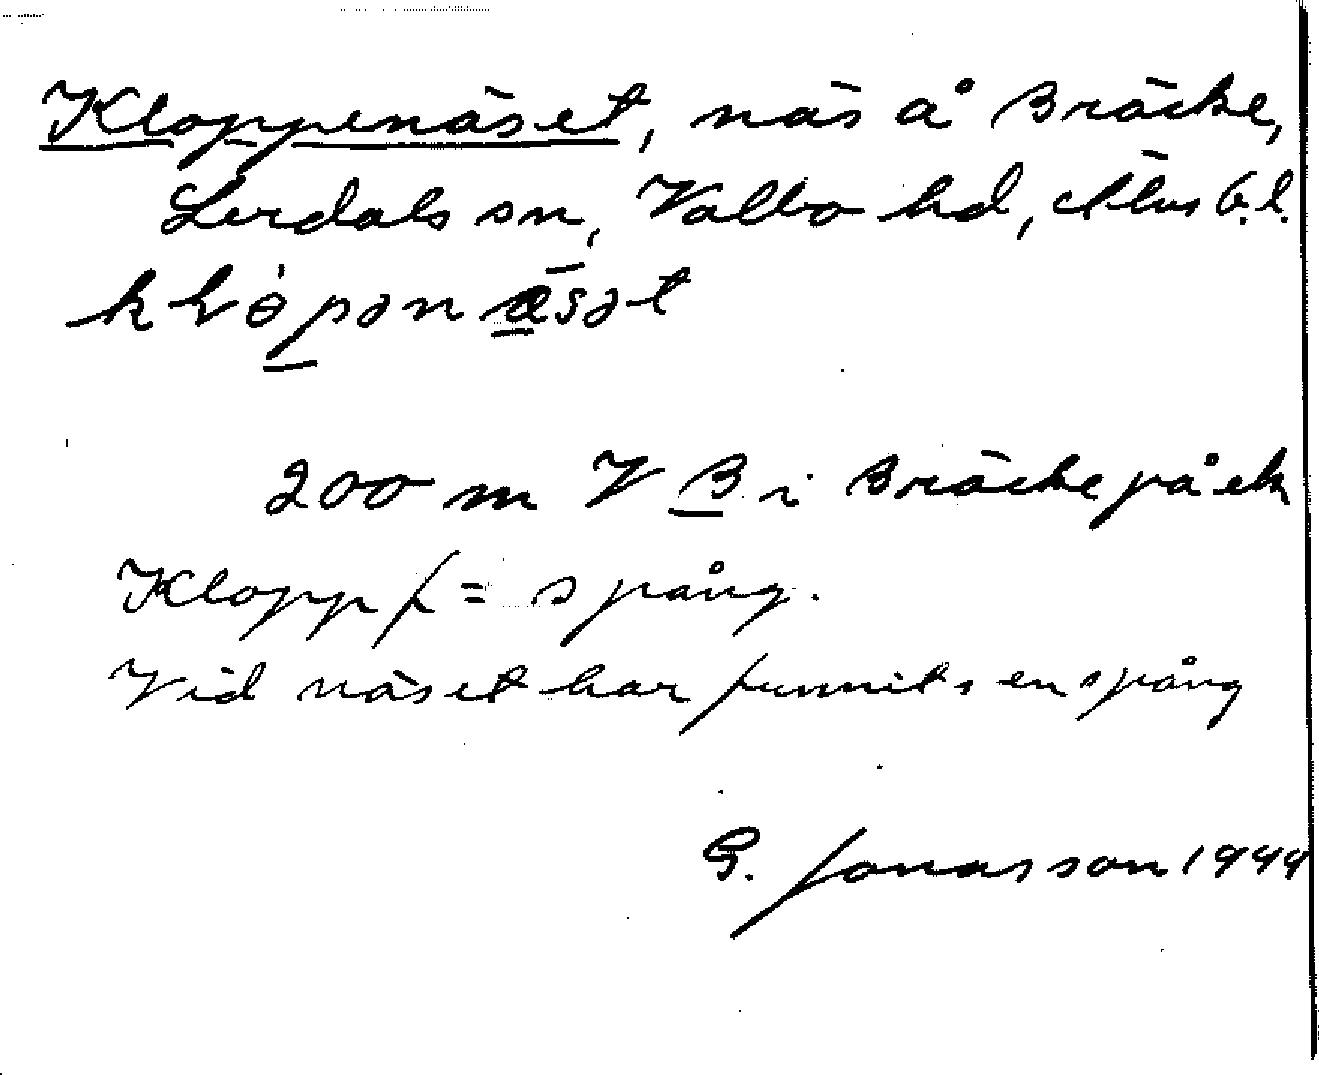 Kloppenäset, näs å Bräcke,
Lerdals sn, Valbo hd, Älvsb.l.
200 m V B i Bräcke på ek
Klopp f = spång.
Vid näset har funnits en spång
G. Jonasson 1944